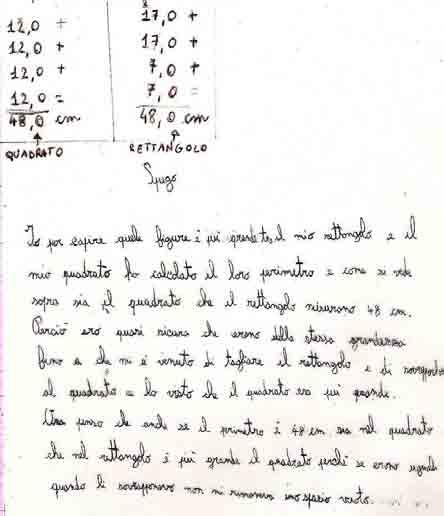 12,0 +
12,0 +
12,0 +
12,0 =
48,0 cm
QUADRATO
17,0 +
17,0 +
7,0 +
7,0 =
48,0 cm
RETTANGOLO
Spiego
Io per capire quale figure è più grande tra il mio rettangolo e il
mio quadrato ho calcolato il loro perimetro e come si vede
sopra sia il quadrato che il rettangolo misurano 48 cm.
Perciò ero quasi sicura che erano della stessa grandezza
fino a che mi è venuto di tagliare il rettangolo e di sovrapporlo
al quadrato e ho visto che il quadrato era più grande.
penso che anche se il perimetro è 48 cm sia nel quadrato
che nel rettangolo è più grande il quadrato perché se erano uguali
quando li sovrapponevo non mi rimaneva uno spazio vuoto.